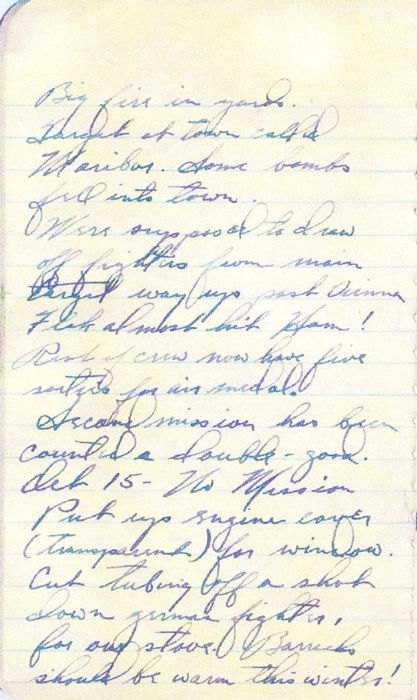 Big fire in yards.
Target at town called
Maribor. Some bombs
fell into town.
Were supposed to draw
off fighters from main
target way up past Vienna
Flak almost hit Ham!
Rest of crew now have five
sorties for air medal.
Second mission has been
counted a double - good.
Oct 15 - No Mission
Put up engine cover
(transparent) for window.
Cut tubing off a shot
down german fighter,
for our stove. Barracks
should be warm this winter!